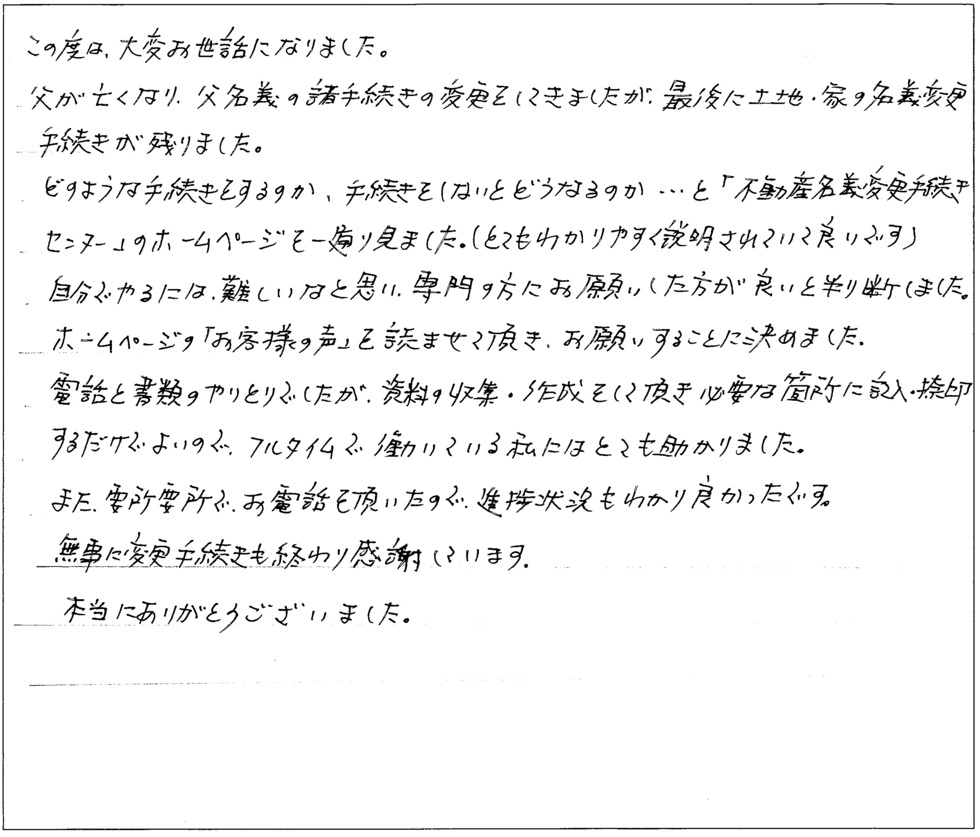 この度は、大変お世話になりました。
父が亡くなり、父名義の諸手続きの変更をしてきましたが、最後に土地・家の名義変更
手続きが残りました。
どのような手続きをするのか、手続きをしないとどうなるのか…と「不動産名義変更手続き
センター」のホームページを一通り見ました。(とてもわかりやすく説明されていて良いです)
自分でやるには、難しいなと思い、専門の方にお願いした方が良いと判断しました。
ホームページの「お客様の声」を読ませて頂き、お願いすることに決めました。
電話と書類のやりとりでしたが、資料の収集・作成をして頂き必要な箇所に記入・捺印
するだけでよいので、フルタイムで働いている私にはとても助かりました。
また、要所要所で、お電話を頂いたので、進捗状況もわかり良かったです。
無事に変更手続きも終わり感謝しています。
本当にありがとうございました。